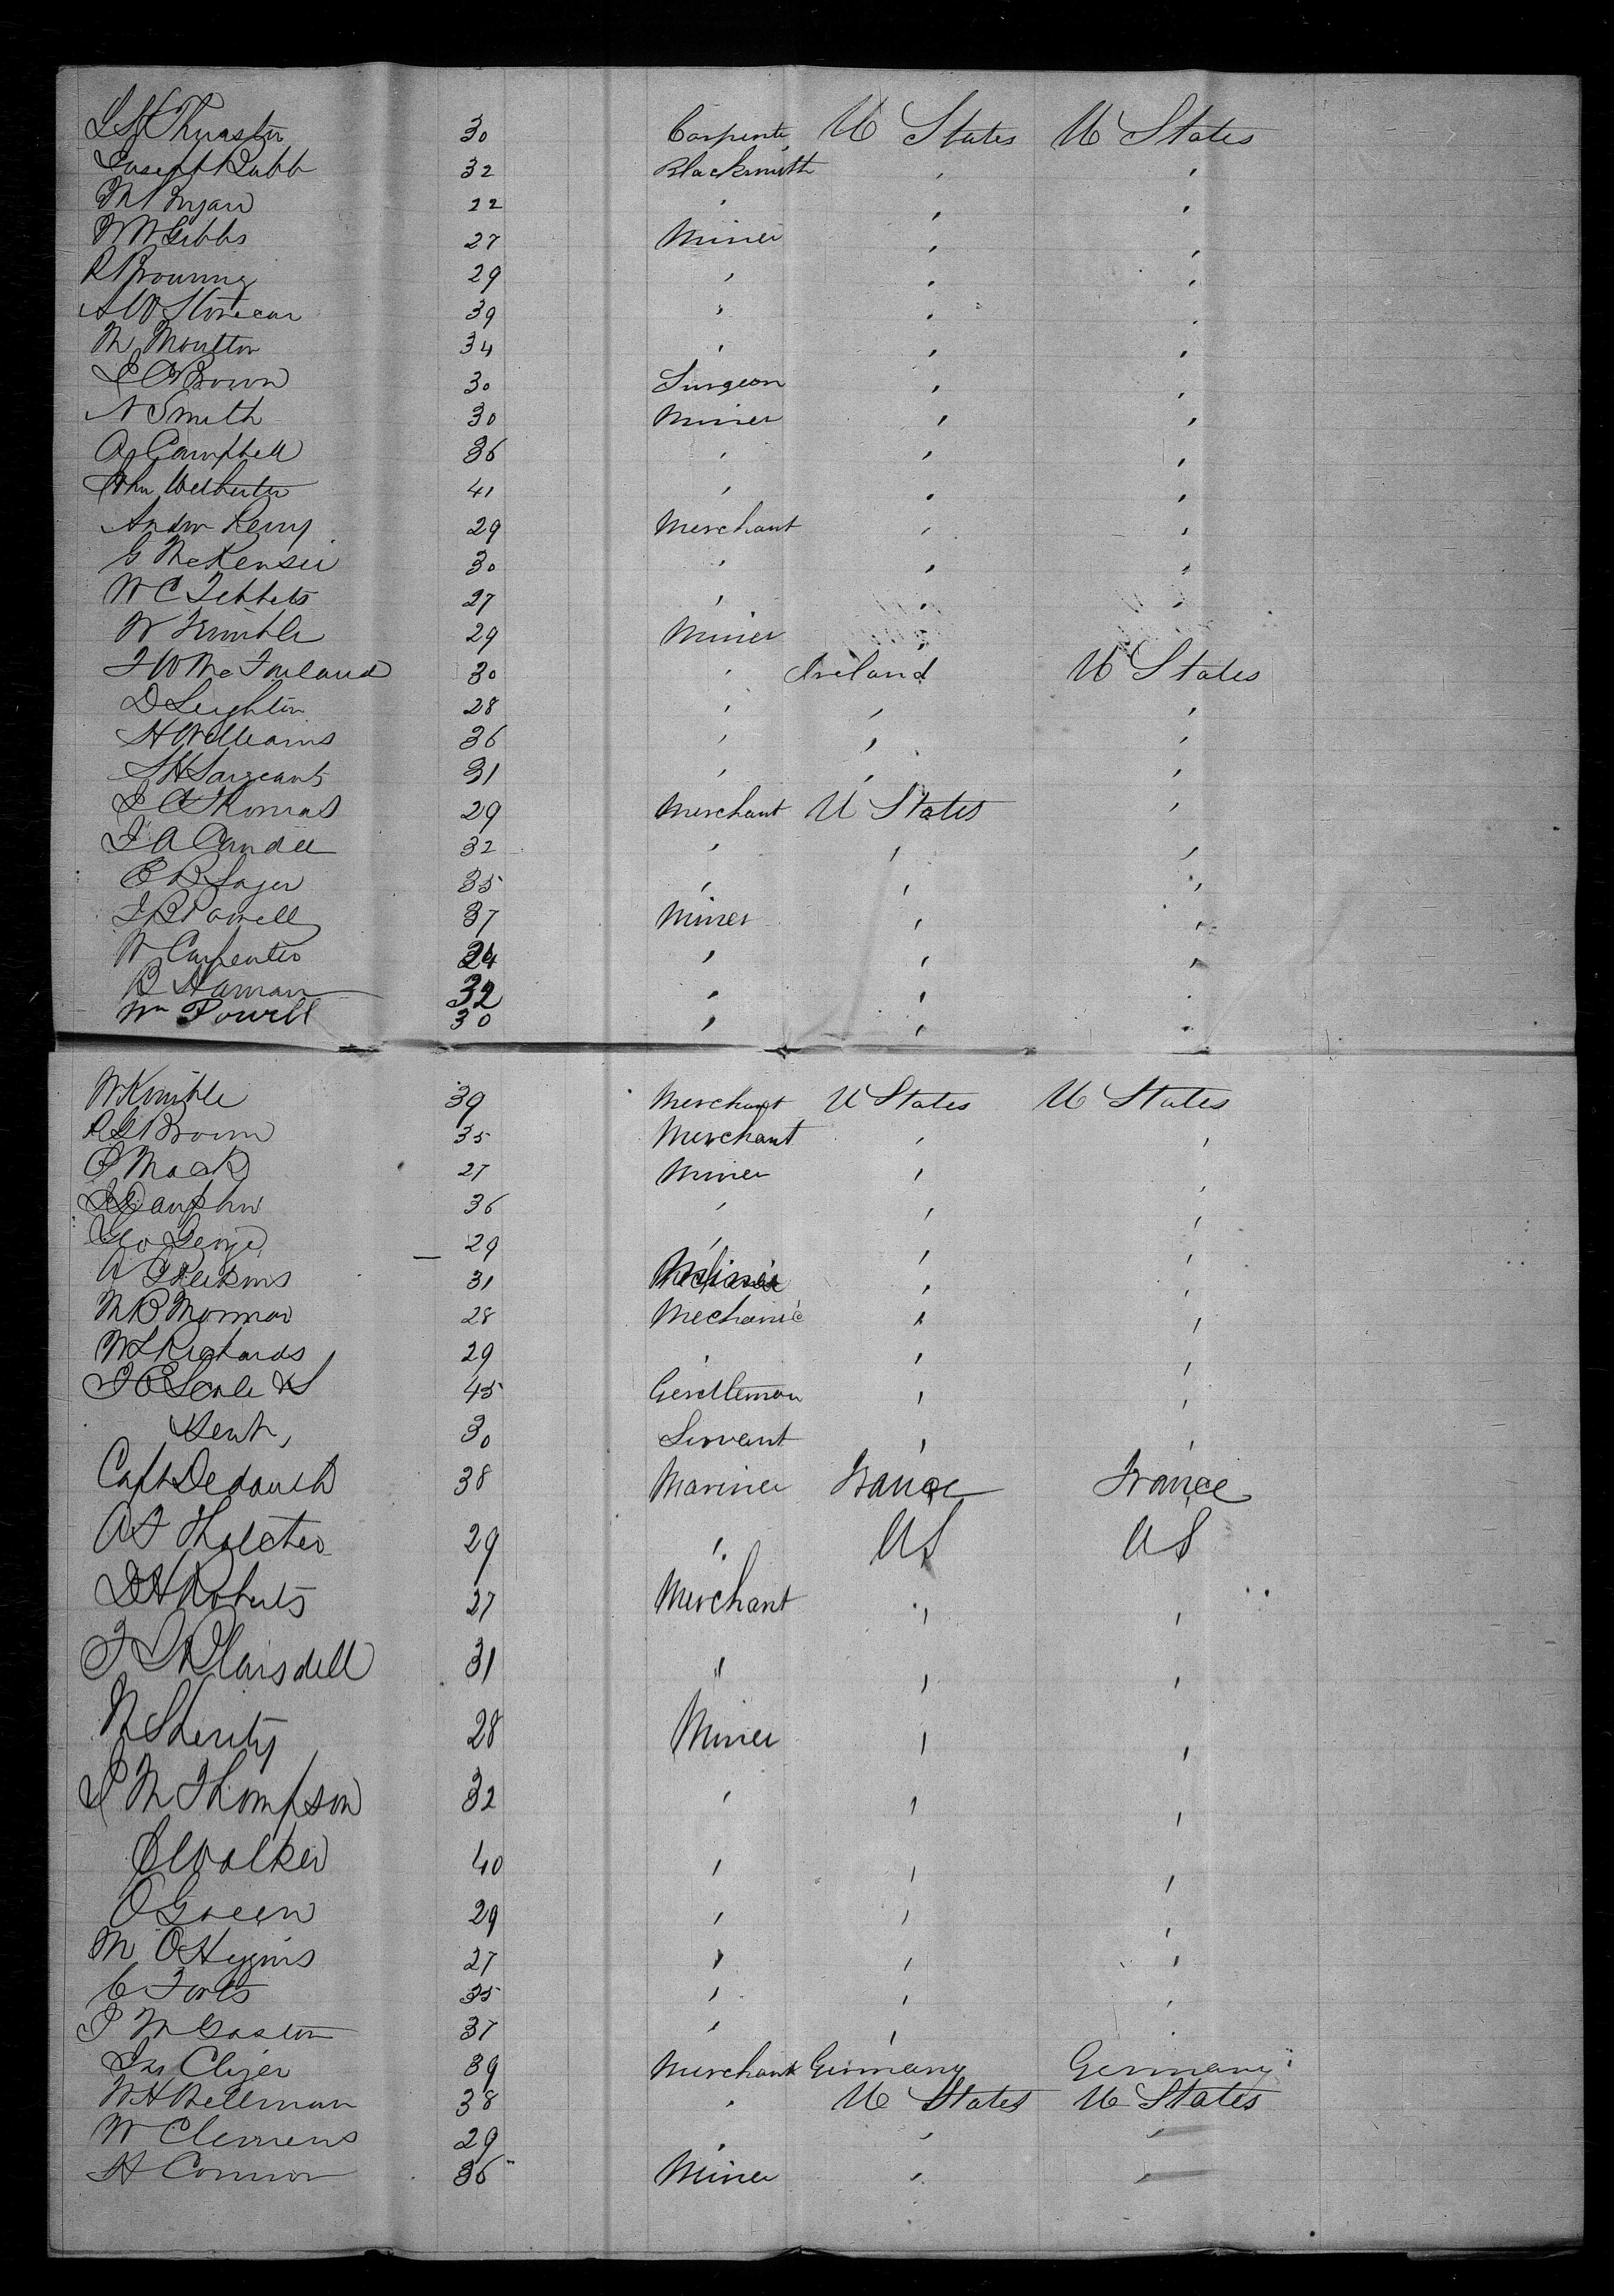 L H Thurston 30 Carpente U States U States
Joseph Rabb 32 Blacksmith " "
M Ryan 22 " " "
W W Gibbs 27 Miner " "
R Browning 29 " " "
A W 39 " " "
M Moulton 34 " " "
J A Brown 30 Surgeon " "
N Smith 30 Miner " "
A Campbell 36 " " "
John 41 " " "
Andw 29 Merchant " "
G McKensie 30 " " "
W C Tebbets 27 " " "
W Trimble 29 Miner " "
J W McFarland 30 " Ireland U States
D Leighton 28 " " "
H Williams 36 " " "
S H Sargeant 31 " " "
J A Thomas 29 Merchant U States "
J A Candee 32 " " "
E B Sager 35 " " "
J B Powell 37 Miner " "
W Carpenter 24 " " "
B Haman 32 " " "
Wm Powell 30 " " "
W Kimble 39 Merchant U States U States
R G Brown 35 Merchant " "
P Mack 27 Miner " "
J Dauphin 36 " " "
Geo George 29 " " "
A 31 " "
M B Morman 28 Mechanic " "
W L Richards 29 " " "
J B Seale & S 45 Gentleman " "
Sent, 30 Servant " "
Capt 38 Mariner France France
A F Thatcher 29 " U S U S
D H Roberts 27 Merchant " "
F S Blaisdell 31 " " "
M Sherity 28 Miner " "
J M Thompson 32 " " "
J Walker 40 " " "
O Green 29 " " "
M O Higgins 27 " " "
C Forts 35 " " "
J M Gaston 37 " " "
Jas Clyer 39 Merchant Germany Germany
W H Bellman 38 " U States U States
W Clemens 29 " " "
H Connor 36 Miner " "